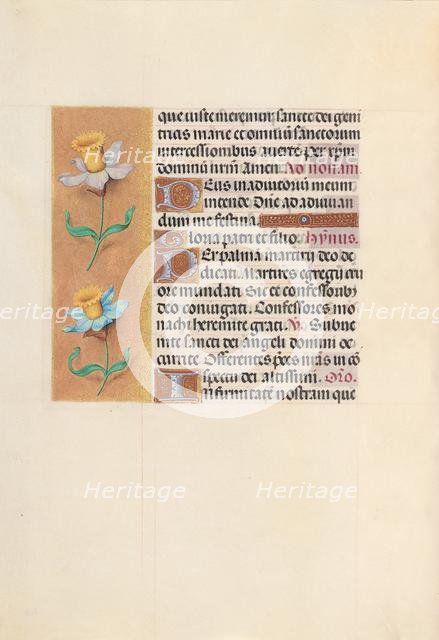 que iuste meremur sancte dei geni
tricis marie et omnium sanctorum
intercessionibus averte per xpm
dominum nrm Amen. Ad nonam.
Deus in adiutorium meum
intende Dne ad adiuvan
dum me festina.
Gloria patri et filio. Hymnus.
Per palmam martirij deo de
dicati Martires egregij cru
ore mundati Sic et confessoribus
deo coniugati. Confessores mo
nachi heremite grati. V. Subve
nite sancti dei Angeli domini oc
currite Offerentes preces meas in co
spectu dei altissimi. Oro.
Infirmitate nostram que
Heritage
Heritage
Heritage
Heritage
Heritage
Heritage
Heritage
Heritage